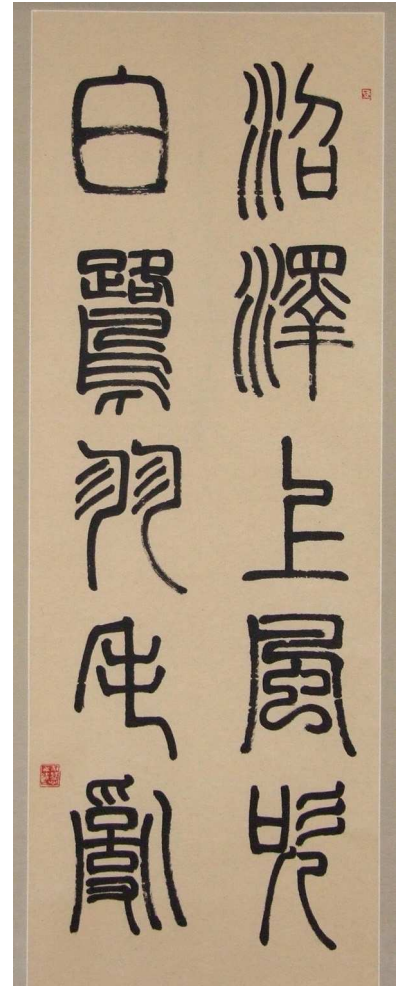 沼澤上風吹
白鷺羽毛亂